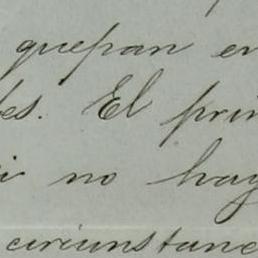 quepan en
des. El prin
si no hay
circunstanc